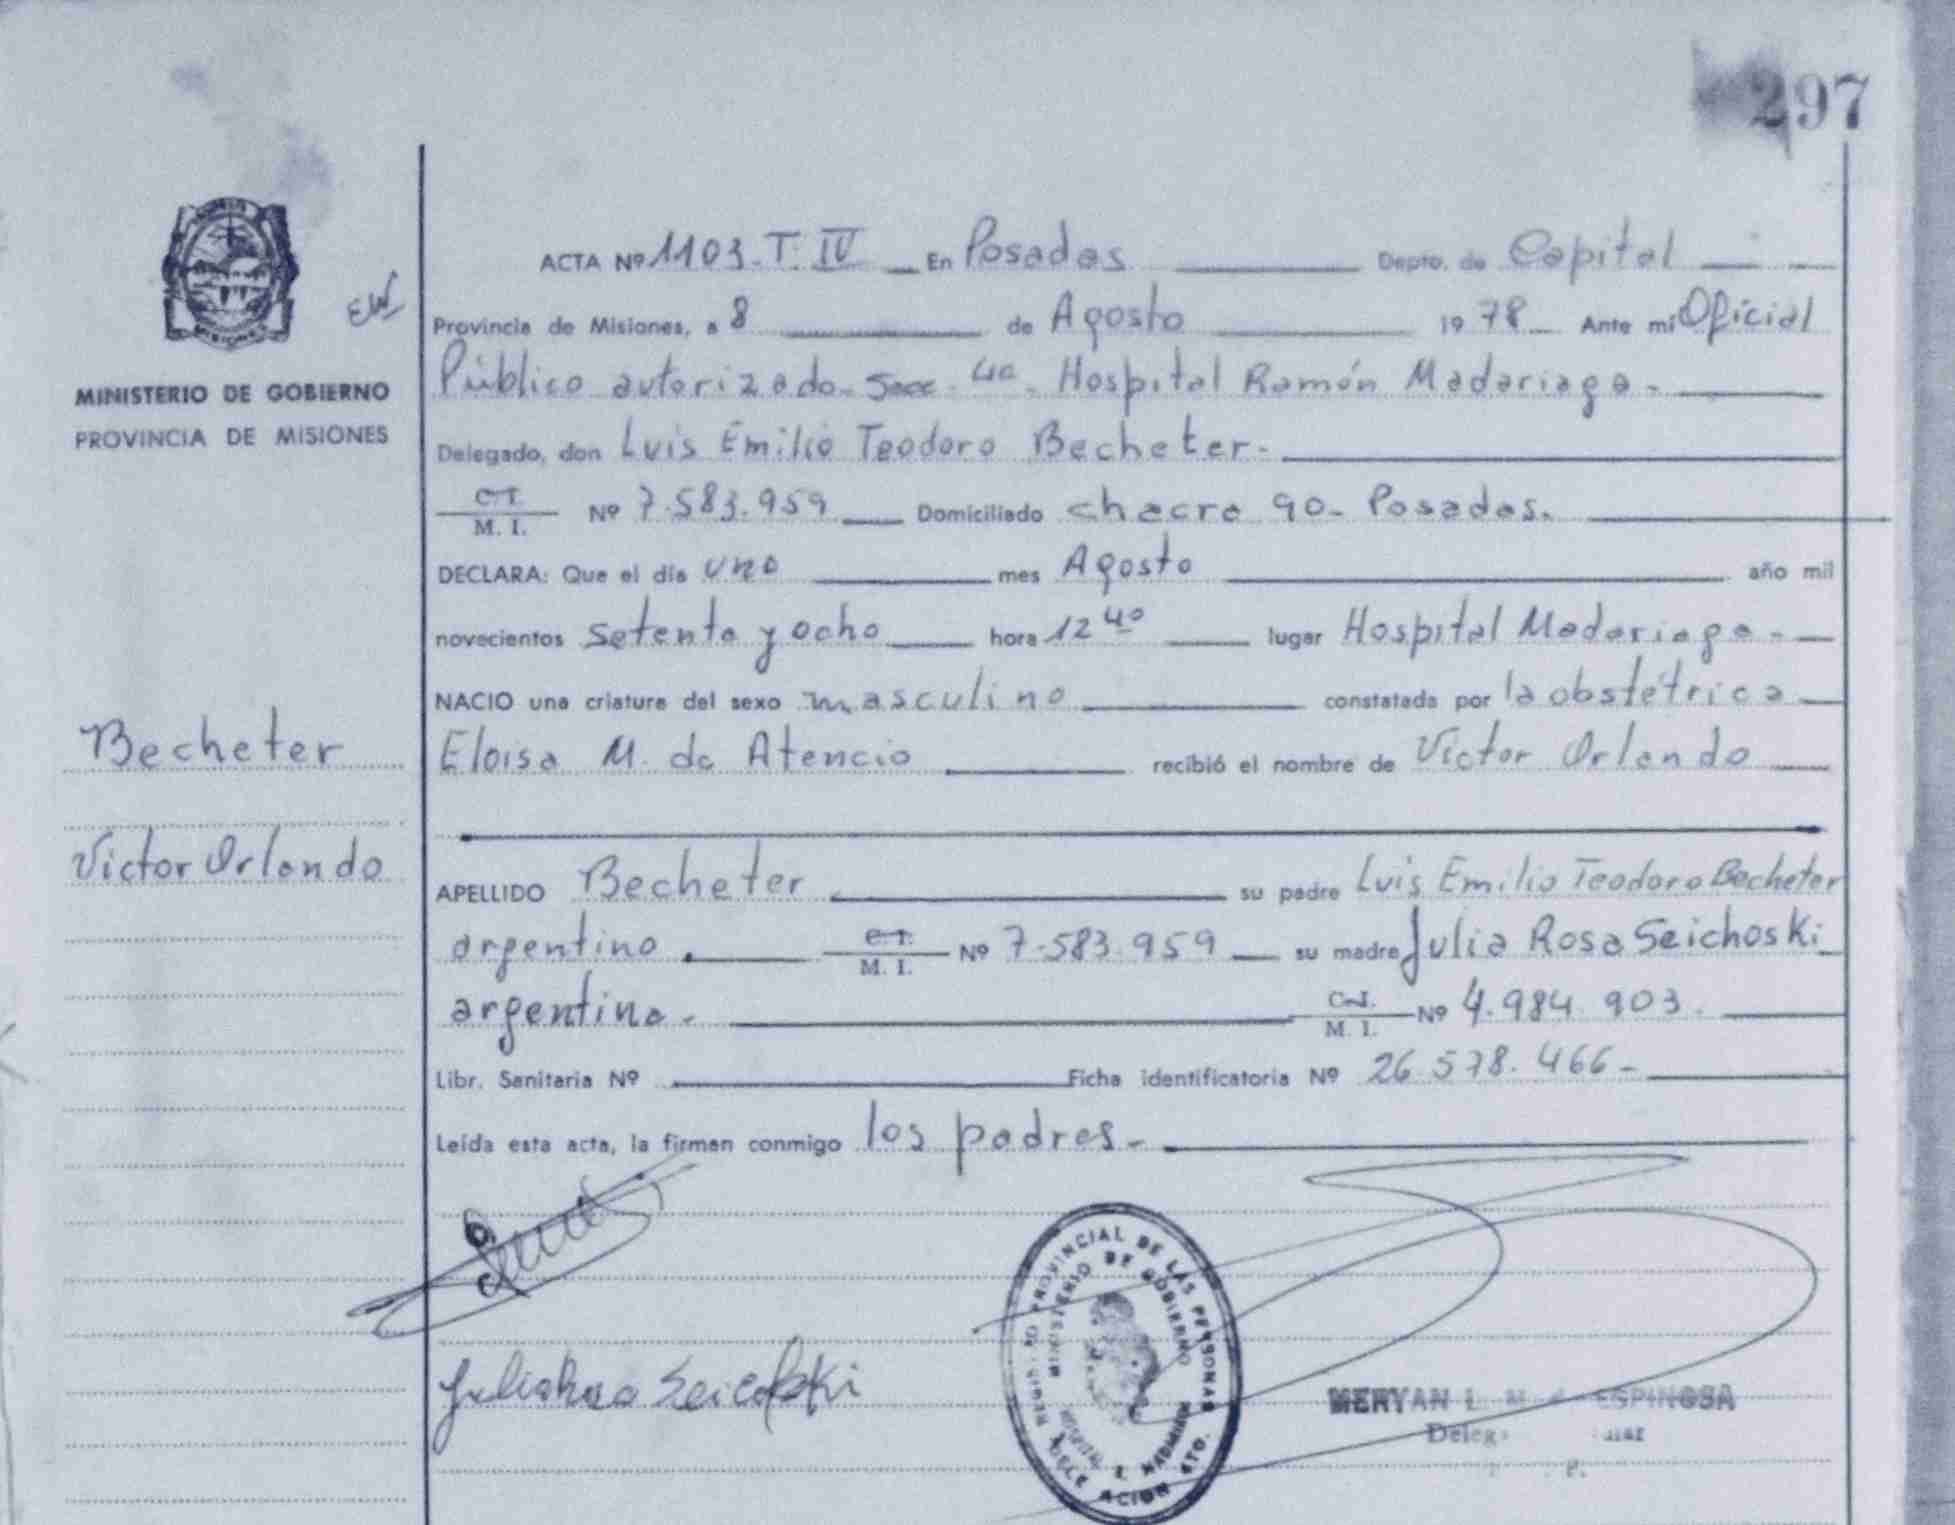 297
ACTA Nº 1103. T. IV En Posadas Depto. de Capital
EW
Provincia de Misiones, a 8 de Agosto 1978 Ante mi Oficial
Público autorizado. Secc. 4a. Hospital Ramón Madariaga.
MINISTERIO DE GOBIERNO
PROVINCIA DE MISIONES
Delegado, don Luis Emilio Teodoro Becheter.
C.I.
M. I. Nº 7.583.959 Domiciliado chacra 90. Posadas.
DECLARA: Que el día uno mes Agosto año mil
novecientos setenta y ocho hora 12 40 lugar Hospital Madariaga.
NACIO una criatura del sexo masculino constatada por la obstétrica
Eloisa M. de Atencio recibió el nombre de Víctor Orlando
Becheter
Víctor Orlando
APELLIDO Becheter su padre Luis Emilio Teodoro Becheter
argentino. C.I.
M. I. Nº 7.583.959 su madre Julia Rosa Seichoski
argentina. C.I.
M. I. Nº 4.984.903.
Libr. Sanitaria Nº Ficha identificatoria Nº 26.578.466-
Leída esta acta, la firman conmigo los padres.
PROVINCIAL DE LAS PERSONAS
MINISTERIO DE GOBIERNO
HOSPITAL
MERYAN L. M. ESPINOSA